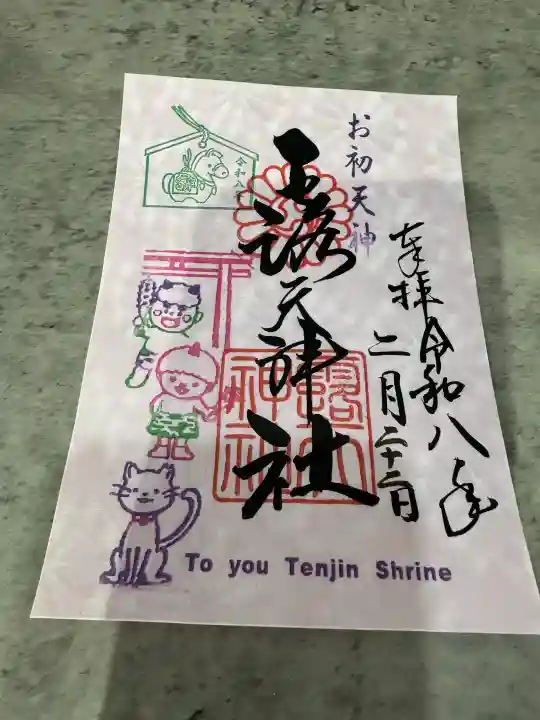 奉拝 令和八年
二月二十二日
お初天神
露天神社
露天
神社
令和八年
To you Tenjin Shrine